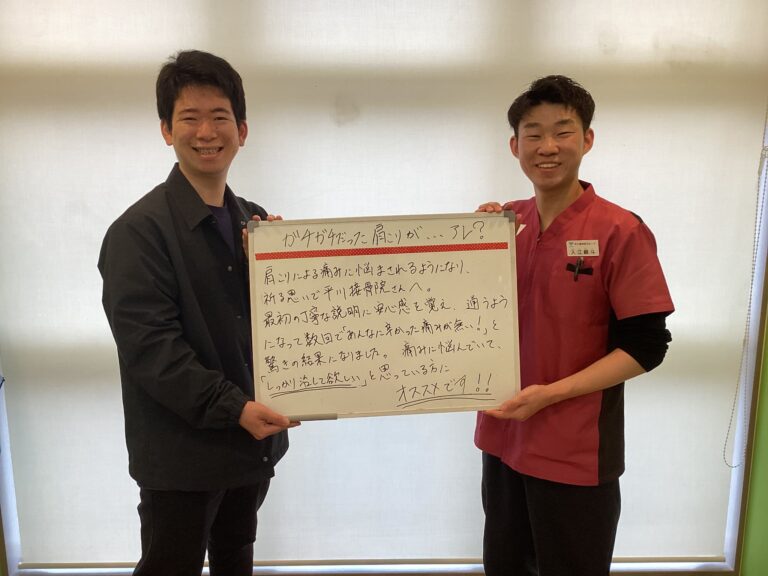 ガチガチだった肩こりが... アレ?
肩こりによる痛みに悩まされるようになり、
祈る思いで平川接骨院さんへ。
最初の丁寧な説明に安心感を覚え、通うよう
になって数回で「あんなに辛かった痛みが無い!」と
驚きの結果になりました。痛みに悩んでいて、
「しっかり治して欲しい」と思っている方に
オススメです!!